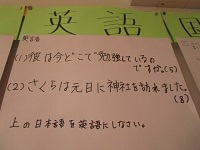 英語
英語
(1) 彼は今どこで勉強しているの
ですか。(5)
(2) さくらは元日に神社を訪れました。
(8)
上の日本語を英語にしなさい。